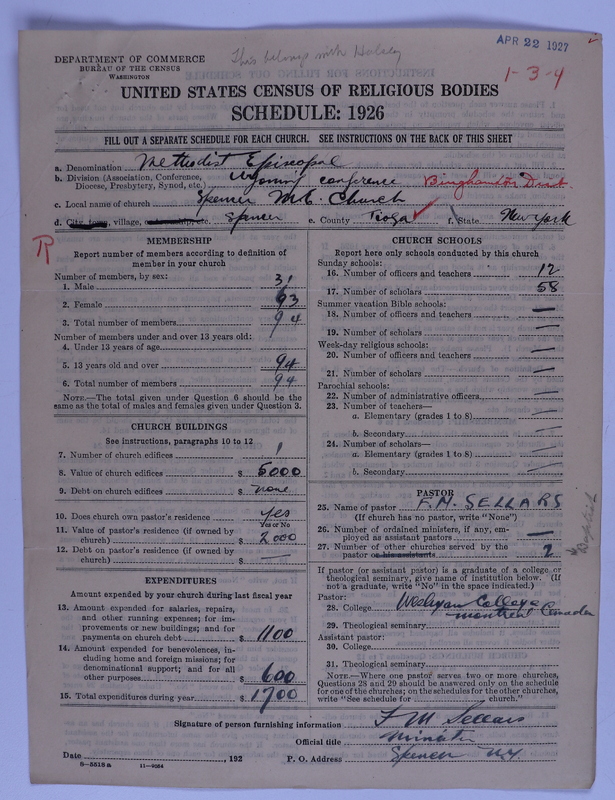 This belongs with Halsey
APR 22 1927
1-3-4
DEPARTMENT OF COMMERCE
BUREAU OF THE CENSUS
WASHINGTON
UNITED STATES CENSUS OF RELIGIOUS BODIES
SCHEDULE: 1926
FILL OUT A SEPARATE SCHEDULE FOR EACH CHURCH. SEE INSTRUCTIONS ON THE BACK OF THIS SHEET
a. Denomination Methodist Episcopal
b. Division (Association, Conference, Diocese, Presbytery, Synod, etc.) Wyoming conference Binghamton Dist.
c. Local name of church Spencer M.E. Church
d. City, town, village, township, etc. Spencer e. County Tioga f. State New York
R
MEMBERSHIP
Report number of members according to definition of
member in your church
Number of members, by sex:
1. Male 31
2. Female 63
3. Total number of members 94
Number of members under and over 13 years old:
4. Under 13 years of age
5. 13 years old and over 94
6. Total number of members 94
NOTE.—The total given under Question 6 should be
the same as the total of males and females given under Question 3.
CHURCH BUILDINGS
See instructions, paragraphs 10 to 12
7. Number of church edifices 1
8. Value of church edifices $ 5000
9. Debt on church edifices $ none
10. Does church own pastor's residence yes
Yes or No
11. Value of pastor's residence (if owned by
church) $ 2000
12. Debt on pastor's residence (if owned by
church) $ —
EXPENDITURES
Amount expended by church during last fiscal year
13. Amount expended for salaries, repairs,
and other running expenses; for im-
provements or new buildings; and for
payments on church debt $ 1100
14. Amount expended for benevolences, in-
cluding home and foreign missions; for
denominational support; and for all
other purposes $ 600
15. Total expenditures during year $ 1700
CHURCH SCHOOLS
Report here only schools conducted by this church
Sunday schools:
16. Number of officers and teachers 12
17. Number of scholars 58
Summer vacation Bible schools:
18. Number of officers and teachers —
19. Number of scholars —
Week-day religious schools:
20. Number of officers and teachers —
21. Number of scholars —
Parochial schools:
22. Number of administrative officers —
23. Number of teachers—
a. Elementary (grades 1 to 8) —
b. Secondary —
24. Number of scholars—
a. Elementary (grades 1 to 8) —
b. Secondary —
PASTOR
25. Name of pastor F.M. SELLARS
(If church has no pastor, write "None")
26. Number of ordained ministers, if any, em-
ployed as assistant pastors —
27. Number of other churches served by the
pastor or his assistants 2
If pastor (or assistant pastor) is a graduate of a college or
theological seminary, give name of institution below. (If
not a graduate, write "No" in the space indicated.)
Pastor:
28. College Wesleyan College
Montreal Canada
29. Theological seminary
Assistant pastor:
30. College
31. Theological seminary
NOTE.—Where one pastor serves two or more churches,
Questions 28 and 29 should be answered only on the schedule
for one of the churches; on the schedules for the other churches,
write "See schedule for church."
Signature of person furnishing information F M Sellars
Official title Minister
Date , 192 P. O. Address Spencer N.Y.
8-5515a 11-9064